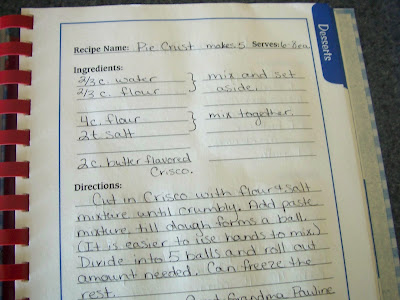 Desserts
Recipe Name: Pie Crust makes 5 Serves: 6-8 ea
Ingredients:
2/3 c. water } mix and set
2/3 c. flour aside.
4 c. flour } mix together.
2 t salt
2 c. butter flavored
Crisco.
Directions:
Cut in Crisco with flour & salt
mixture until crumbly. Add paste
mixture till dough forms a ball.
(It is easier to use hands to mix)
Divide into 5 balls and roll out
amount needed. Can freeze the
rest.
Grandma Pauline